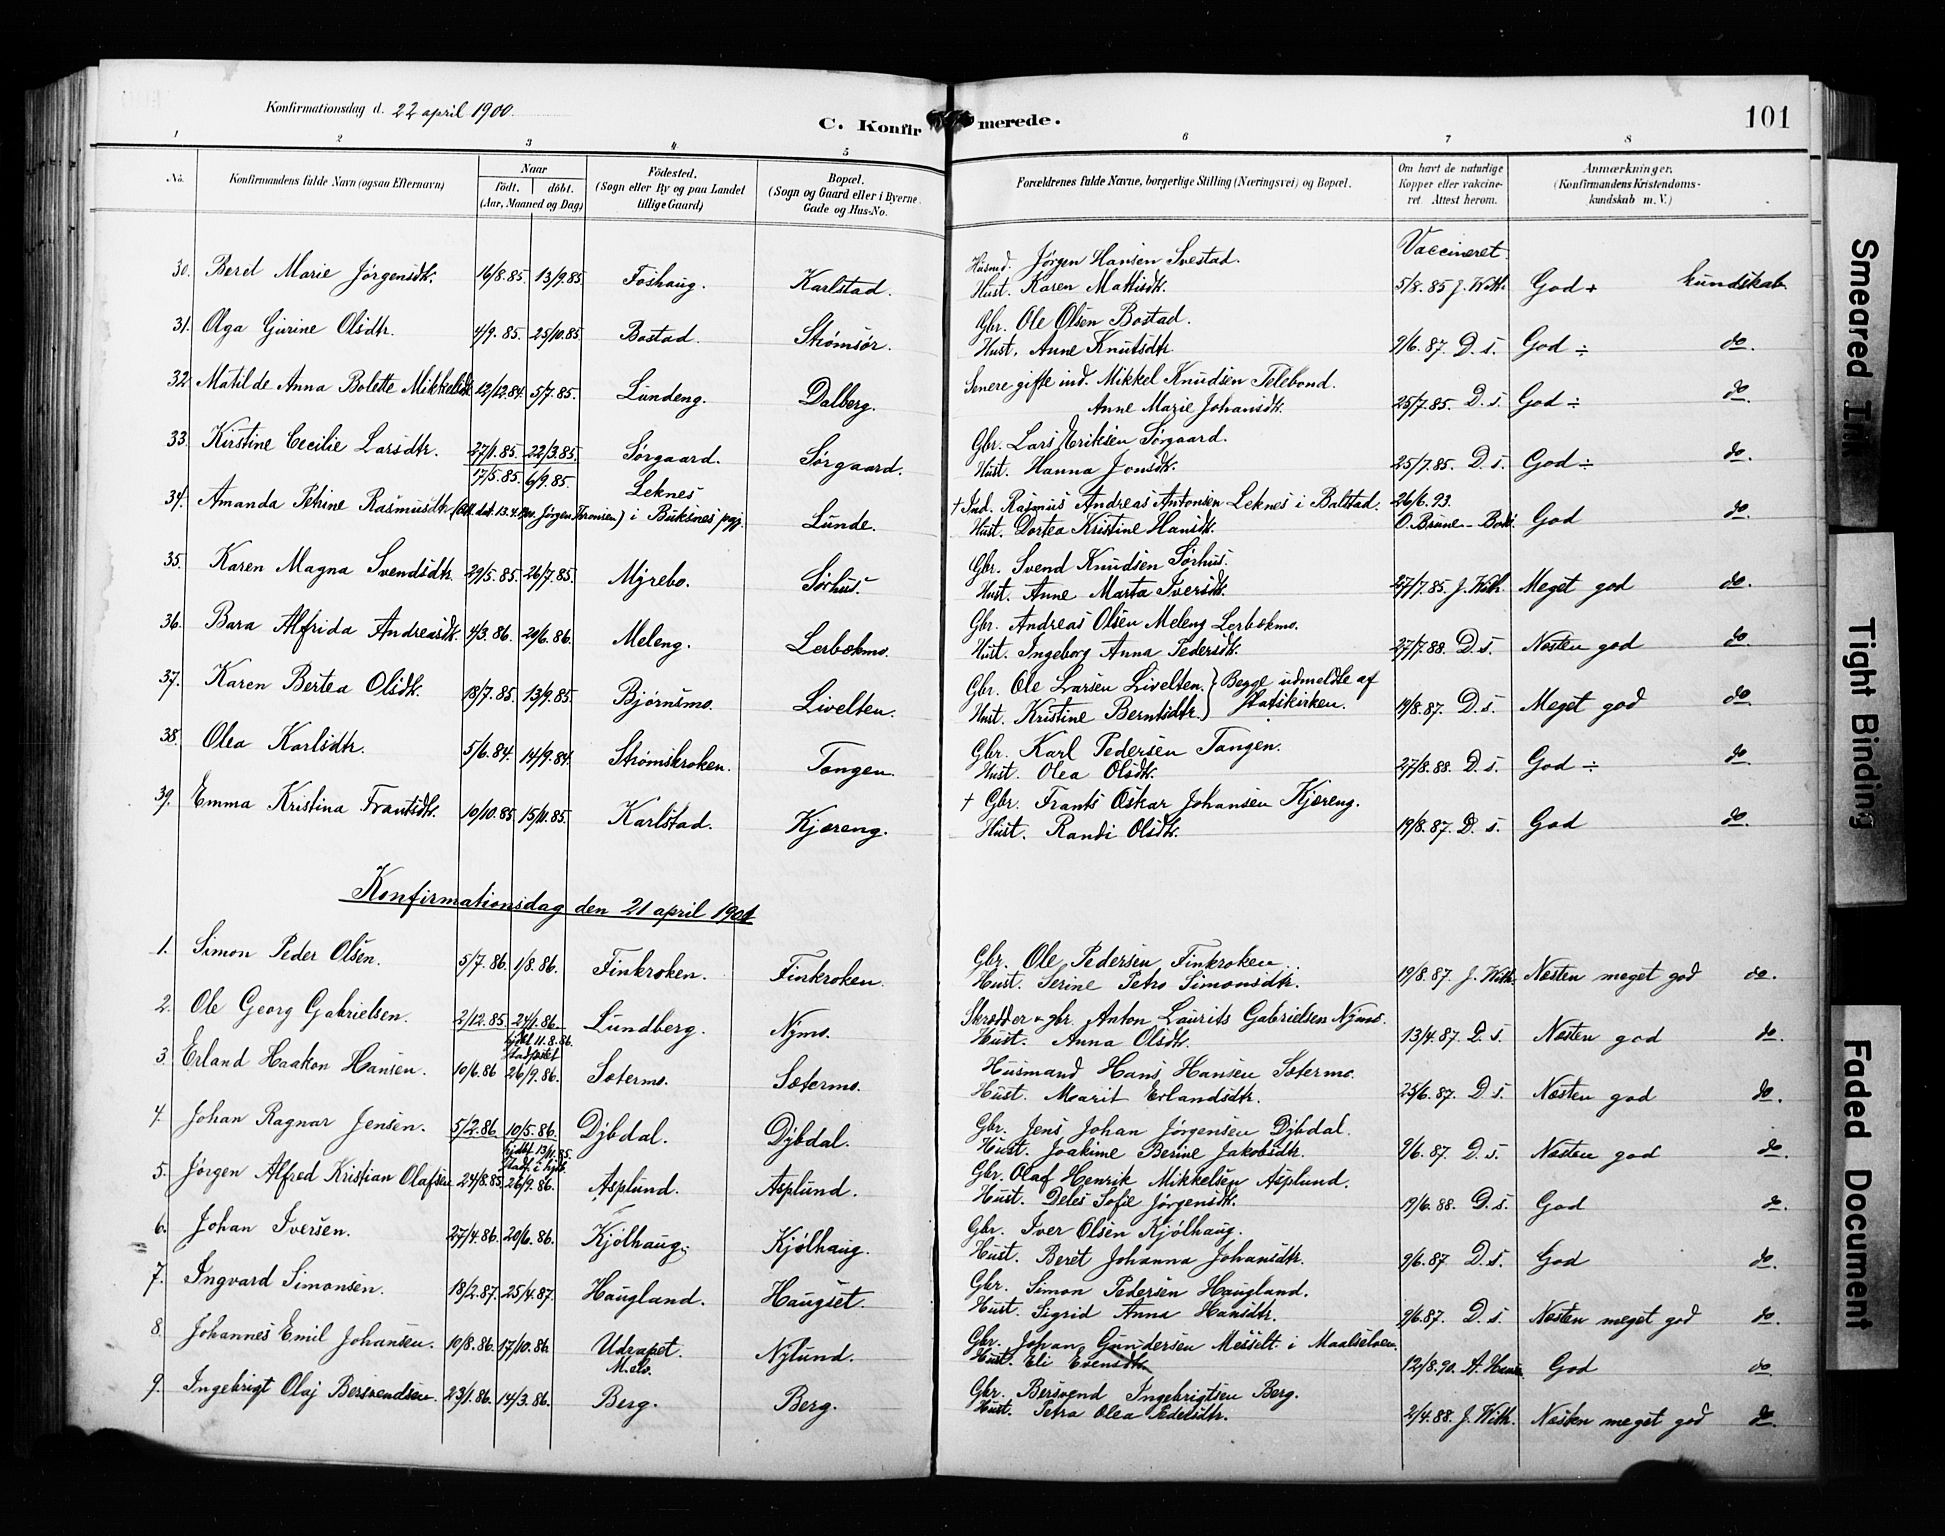 Konfirmationsdag d. 22 april 1900.
C. Konfirmerede.
101
1 2 3 4 5 6 7 8
No. Konfirmandens fulde Navn (ogsaa Efternavn) Naar födt. döbt. (Aar, Maaned og Dag) Födested. (Sogn eller By og paa Landet tillige Gaard) Bopæl. (Sogn og Gaard eller i Byerne Gade og Hus-No. Forældrenes fulde Navne, borgerlige Stilling (Næringsvei) og Bopæl. Om havt de naturlige Kopper eller vakcineret. Attest herom. Anmærkninger. (Konfirmandens Kristendomskundskab m. V.)
Vaccineret
30. Berit Marie Jørgensdtr. 16/8.85. 13/9.85. Foshaug. Karlstad. Husmd. Jørgen Hansen Svestad.
Hust. Karen Mathisdtr. 5/8.85 J. With. God + kundskab
31. Olga Gurine Olsdtr. 4/9.85. 25/10.85. Bostad. Strømsør. Gbr. Ole Olsen Bostad.
Hust. Anne Knutsdtr. 9/6.87. D. s. God ÷ do.
32. Matilde Anna Bolette Mikkelsdtr. 12/12.84. 5/7.85. Lundeng. Dalberg. Senere gifte ind. Mikkel Knudsen Telebond.
Anne Marie Johansdtr. 25/7.85. D. s. God ÷ do.
33. Kirstine Cecilie Larsdtr. 27/1.85. 22/3.85. Sørgaard. Sørgaard. Gbr. Lars Eriksen Sørgaard.
Hust. Hanna Jonsdtr. 25/7.85. D. s. God ÷ do.
34. Amanda Petrine Rasmusdtr. 17/5.85. 6/9.85. Leknes i Buksnes pgj. Lunde. † Ind. Rasmus Andreas Antonsen Leknes i Balstad. 26/6.93.
Hust. Dortea Kristine Hansdtr. O. Brune - Bodø God do.
35. Karen Magna Svendsdtr. 29/5.85. 26/7.85. Myrebo. Sørhus. Gbr. Svend Knudsen Sørhus.
Hust. Anne Marta Iversdtr. 27/7.85. J. With. Meget god do.
36. Bara Alfrida Andreasdtr. 4/3.86. 20/6.86. Meleng. Lerbækmo. Gbr. Andreas Olsen Meleng Lerbækmo.
Hust. Ingeborg Anna Pedersdtr. 27/7.88. D. s. Næsten god do.
37. Karen Bertea Olsdtr. 18/7.85. 13/9.85. Bjørnsmo. Livelten. Gbr. Ole Larsen Livelten. } Begge udmeldte af
Hust. Kristine Berntsdtr. } Statskirken. 19/8.87. D. s. Meget god do.
38. Olea Karlsdtr. 5/6.84. 14/9.84. Strømskroken. Tangen. Gbr. Karl Pedersen Tangen.
Hust. Olea Olsdtr. 27/8.88. D. s. God ÷ do.
39. Emma Kristina Frantsdtr. 10/10.85. 15/11.85. Karlstad. Kjæreng. † Gbr. Frants Oskar Johansen Kjæreng.
Hust. Randi Olsdtr. 19/8.87. D. s. God do.
Konfirmationsdag den 21 april 1901
1. Simon Peder Olsen. 5/7.86. 1/8.86. Finkroken. Finkroken. Gbr. Ole Pedersen Finkroken.
Hust. Serine Petro Simonsdtr. 19/8.87. J. With. Næsten meget god do.
2. Ole Georg Gabrielsen. 2/12.85. 24/1.86. Lundberg. Nymo. Skrædder & gbr. Anton Laurits Gabrielsen Nymo.
Hust. Anna Olsdtr. 13/4.87. D. s. Næsten god do.
3. Erland Haakon Hansen. 10/6.86 hjdbt 11.8.86. stadfæstet 26/9.86. Sætermo. Sætermo. Husmand Hans Hansen Sætermo.
Hust. Marit Erlandsdtr. 25/6.87. D. s. Næsten god do.
4. Johan Ragnar Jensen. 5/2.86. 10/5.86. Dybdal. Dybdal. Gbr. Jens Johan Jørgensen Dybdal.
Hust. Joakime Berine Jakobsdtr. 9/6.87. D. s. Næsten god do.
5. Jørgen Alfred Kristian Olafsen 24/8.85. hjdbt 13/11.85. stadf. i kjrk. 26/9.86. Asplund. Asplund. Gbr. Olaf Henrik Mikkelsen Asplund.
Hust. Deles Sofie Jørgensdtr. 19/6.88. D. s. God do.
6. Johan Iversen. 27/4.86. 20/6.86. Kjølhaug. Kjølhaug. Gbr. Iver Olsen Kjølhaug.
Hust. Beret Johanna Johansdtr. 9/6.87 D. s. God do.
7. Ingvard Simonsen. 18/2.87. 25/4.87. Haugland. Haugset. Gbr. Simon Pedersen Haugland.
Hust. Sigrid Anna Hansdtr. 9/6.87. D. s. Næsten meget god do.
8. Johannes Emil Johansen. 10/8.86. 17/10.86. Udrapet. Melo. Nylund. Gbr. Johan Gundersen Messelt i Maalselven.
Hust. Eli Evensdtr. 12/8.90. God do.
9. Ingebrigt Olaj Bersvendsen 23/1.86. 14/3.86. Berg. Berg. Gbr. Bersvend Ingebrigtsen Berg.
Hust. Petra Olea Pedersdtr. 2/4.88. J. With. Næsten meget god do.
Smeared Ink
Tight Binding
Faded Document